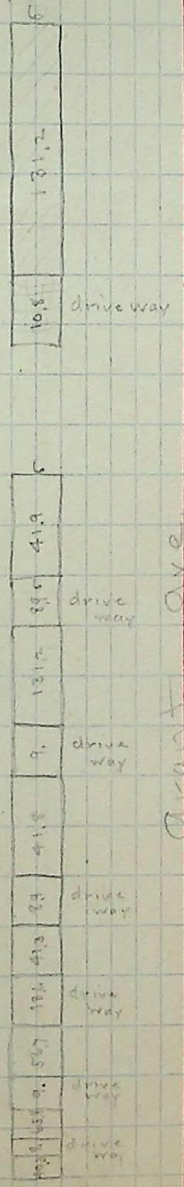 5
131.2
10.8
drive way
5
41.9
drive
way
131.2
9.
drive
way
41.8
8.9
drive
way
41.3
drive
way
56.7
9.
drive
way
drive
way
Grant ave